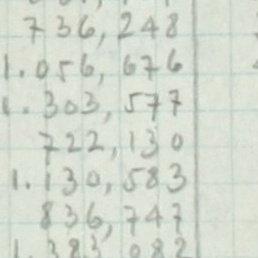 736,248
1.056,676
1.303,577
722,130
1.130,583
836,747
1.383,082